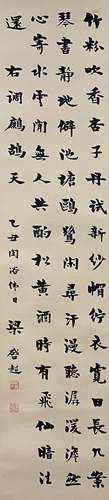 竹粉吹香杏子丹試新紗帽紵衣寬日長几案
琴書靜地僻池塘鷗鷺閒尋汗漫聽潺湲澹然
心寄水雲間無人共酌松黃酒時有飛仙暗往
還　右調鷓鴣天　乙丑閏浴佛日　梁啟超